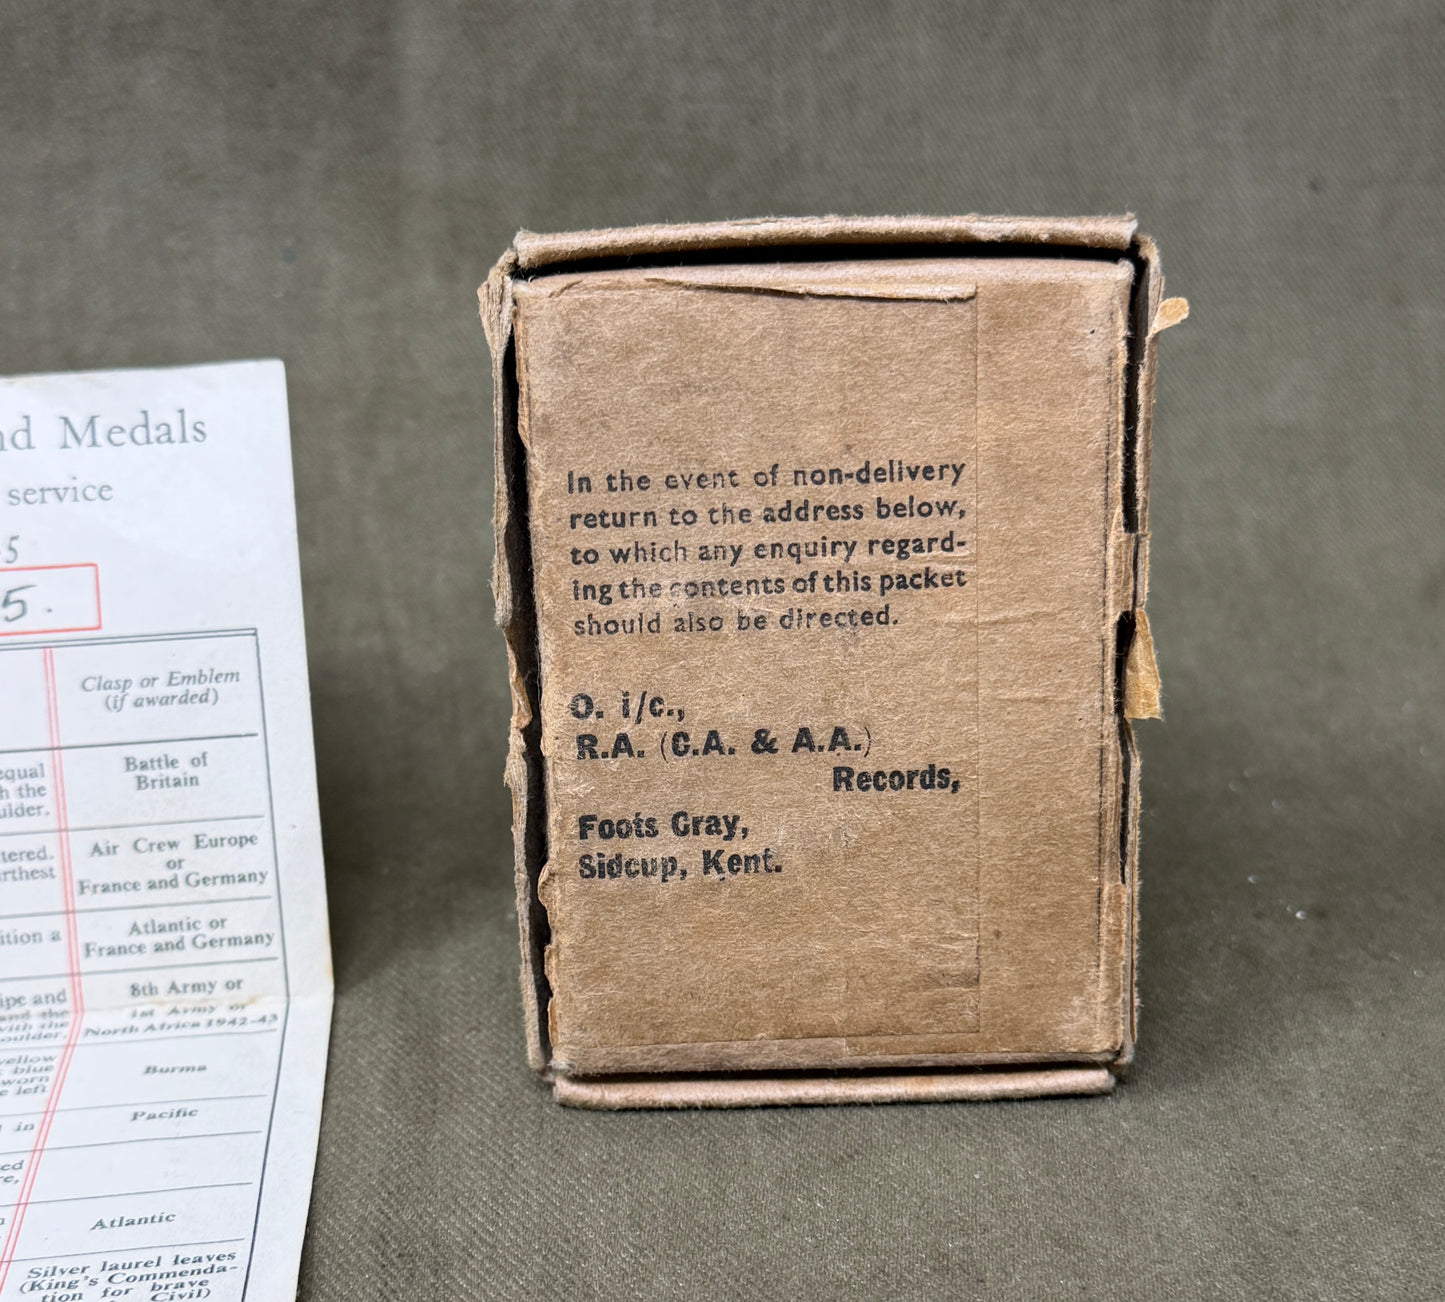 nd Medals
service
-5
5.
Clasp or Emblem
(if awarded)
equal
h the
ulder.
Battle of
Britain
tered.
rthest
Air Crew Europe
or
France and Germany
ition a
Atlantic or
France and Germany
ipe and
and the
with the
oulder.
8th Army or
1st Army or
North Africa 1942-43
yellow
blue
worn
e left
Burma
in
Pacific
ed
re,
Atlantic
Silver laurel leaves
(King's Commenda-
tion for brave
Civil)
In the event of non-delivery
return to the address below,
to which any enquiry regard-
ing the contents of this packet
should also be directed.
O. i/c.,
R.A. (C.A. & A.A.)
Records,
Foots Cray,
Sidcup, Kent.